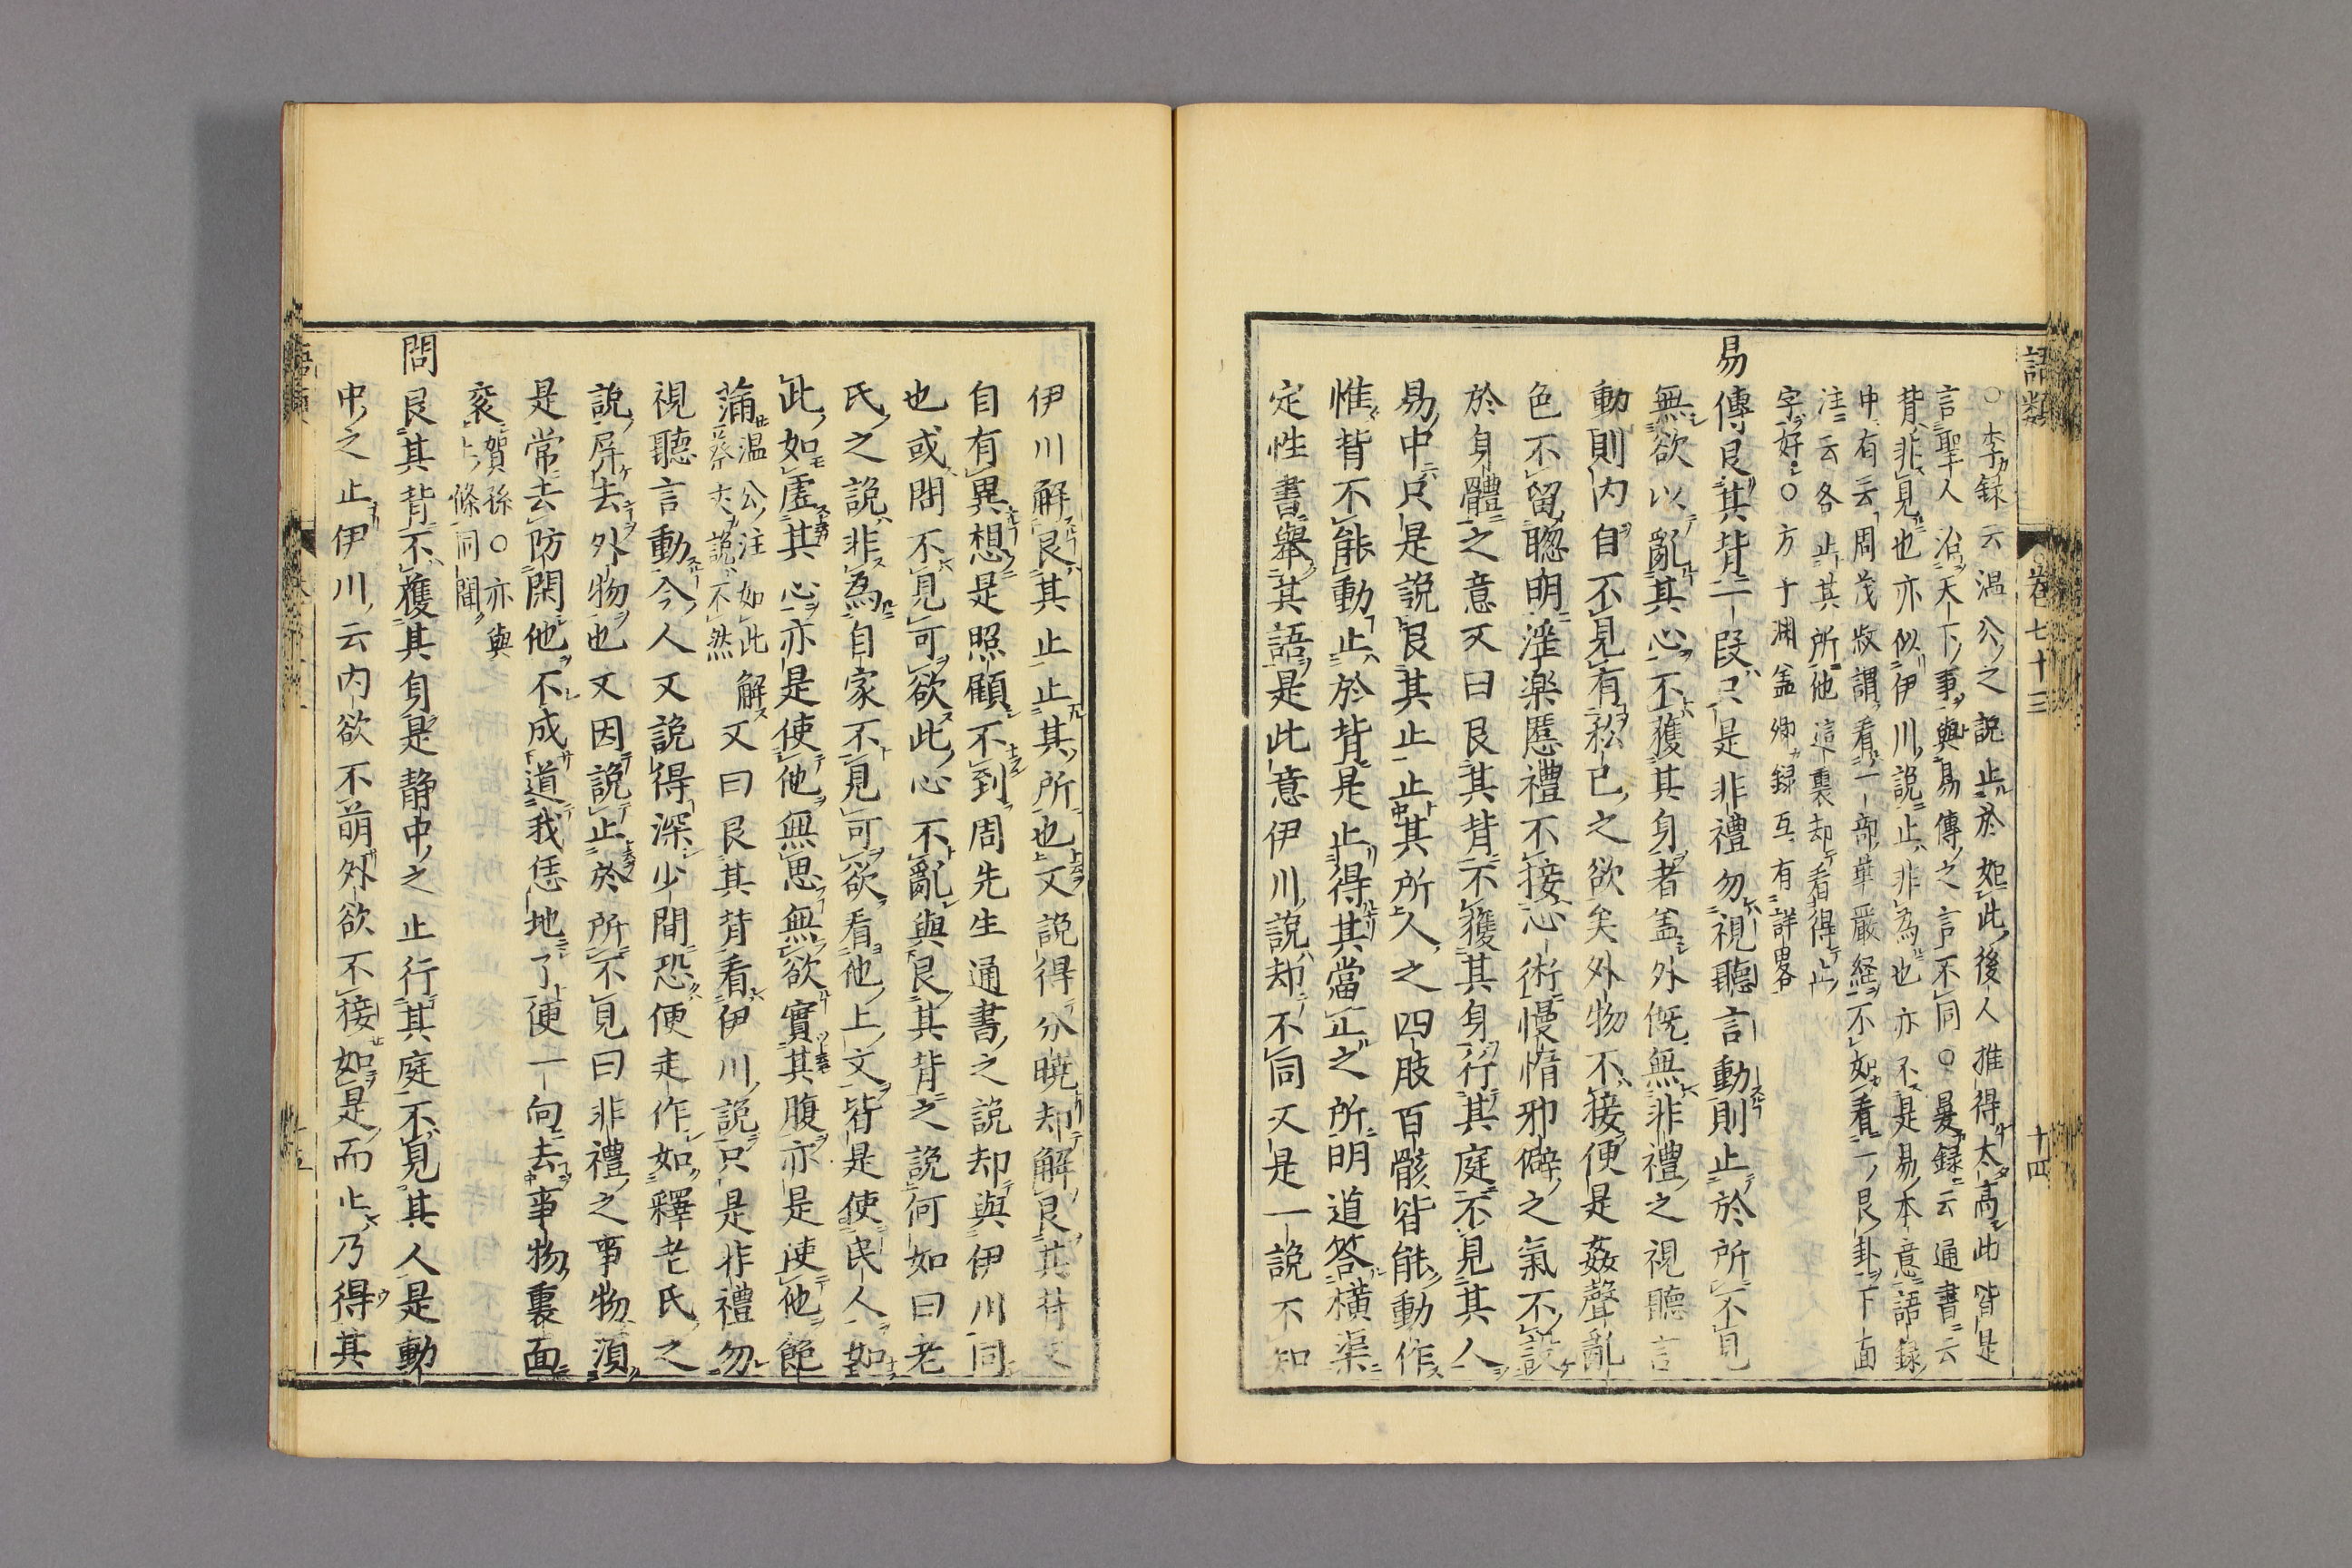 語類
卷七十三
十四
○李録云温公之説止於如此後人推得太高此皆是
言聖人治天下事與易傳之言不同○㬊録云通書云
背非見也亦似伊川説止非為也亦不是易本意語録
中有云周茂叔謂看一部華嚴經不如看一艮卦下面
注云各止其所他這裏却看得止
字好○方子淵蓋卿録互有詳畧
易傳艮其背一段只是非禮勿視聽言動則止於所不見
無欲以亂其心不獲其身者盖外既無非禮之視聽言
動則内自不見有私己之欲矣外物不接便是姦聲亂
色不留聰明淫楽慝禮不接心術慢惰邪僻之氣不設
於身體之意又曰艮其背不獲其身行其庭不見其人
易中只是説艮其止止其所人之四肢百骸皆能動作
惟背不能動止於背是止得其當止之所明道答横渠
定性書舉其語是此意伊川説却不同又是一説不知
伊川解艮其止止其所也又説得分曉却解艮其背又
自有異想是照顧不到周先生通書之説却與伊川同
也或問不見可欲此心不亂與艮其背之説何如曰老
氏之説非為自家不見可欲看他上文皆是使民人如
此如虚其心亦是使他無思無欲實其腹亦是使他飽
滿温公注如此解
蔡丈説不然又曰艮其背看伊川説只是非禮勿
視聽言動今人又説得深少間恐便走作如釋老氏之
説屏去外物也又因説止於所不見曰非禮之事物須
是常去防閑他不成道我恁地了便一向去事物裏面
衮賀孫○亦與
上條同聞
問艮其背不獲其身是静中之止行其庭不見其人是動
中之止伊川云内欲不萌外欲不接如是而止乃得其